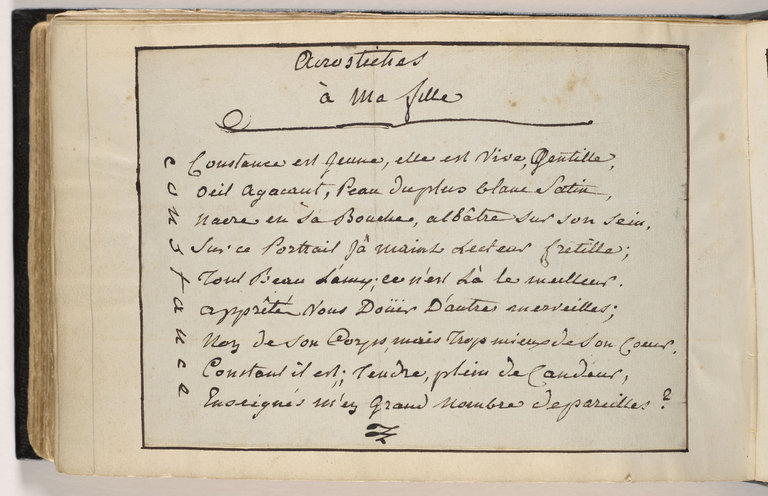 Acrostiches
à Ma fille
Constance
Constance est Jeune, elle est Vive, Gentille,
Oeil agaçant, Peau du plus blanc Satin,
Nacre en sa Bouche, albâtre sur son sein,
Sur ce Portrait Jà maint Lecteur fretille;
Tout Beau L'amy; ce n'est Là le meilleur.
apprêté Vous Doüir D'autres merveilles;
Noy de Son Corps, mais Trop mieux de Son Coeur.
Constant il est; Tendre, plein de Candeur,
Enseignés m'en Grand Nombre de pareilles?